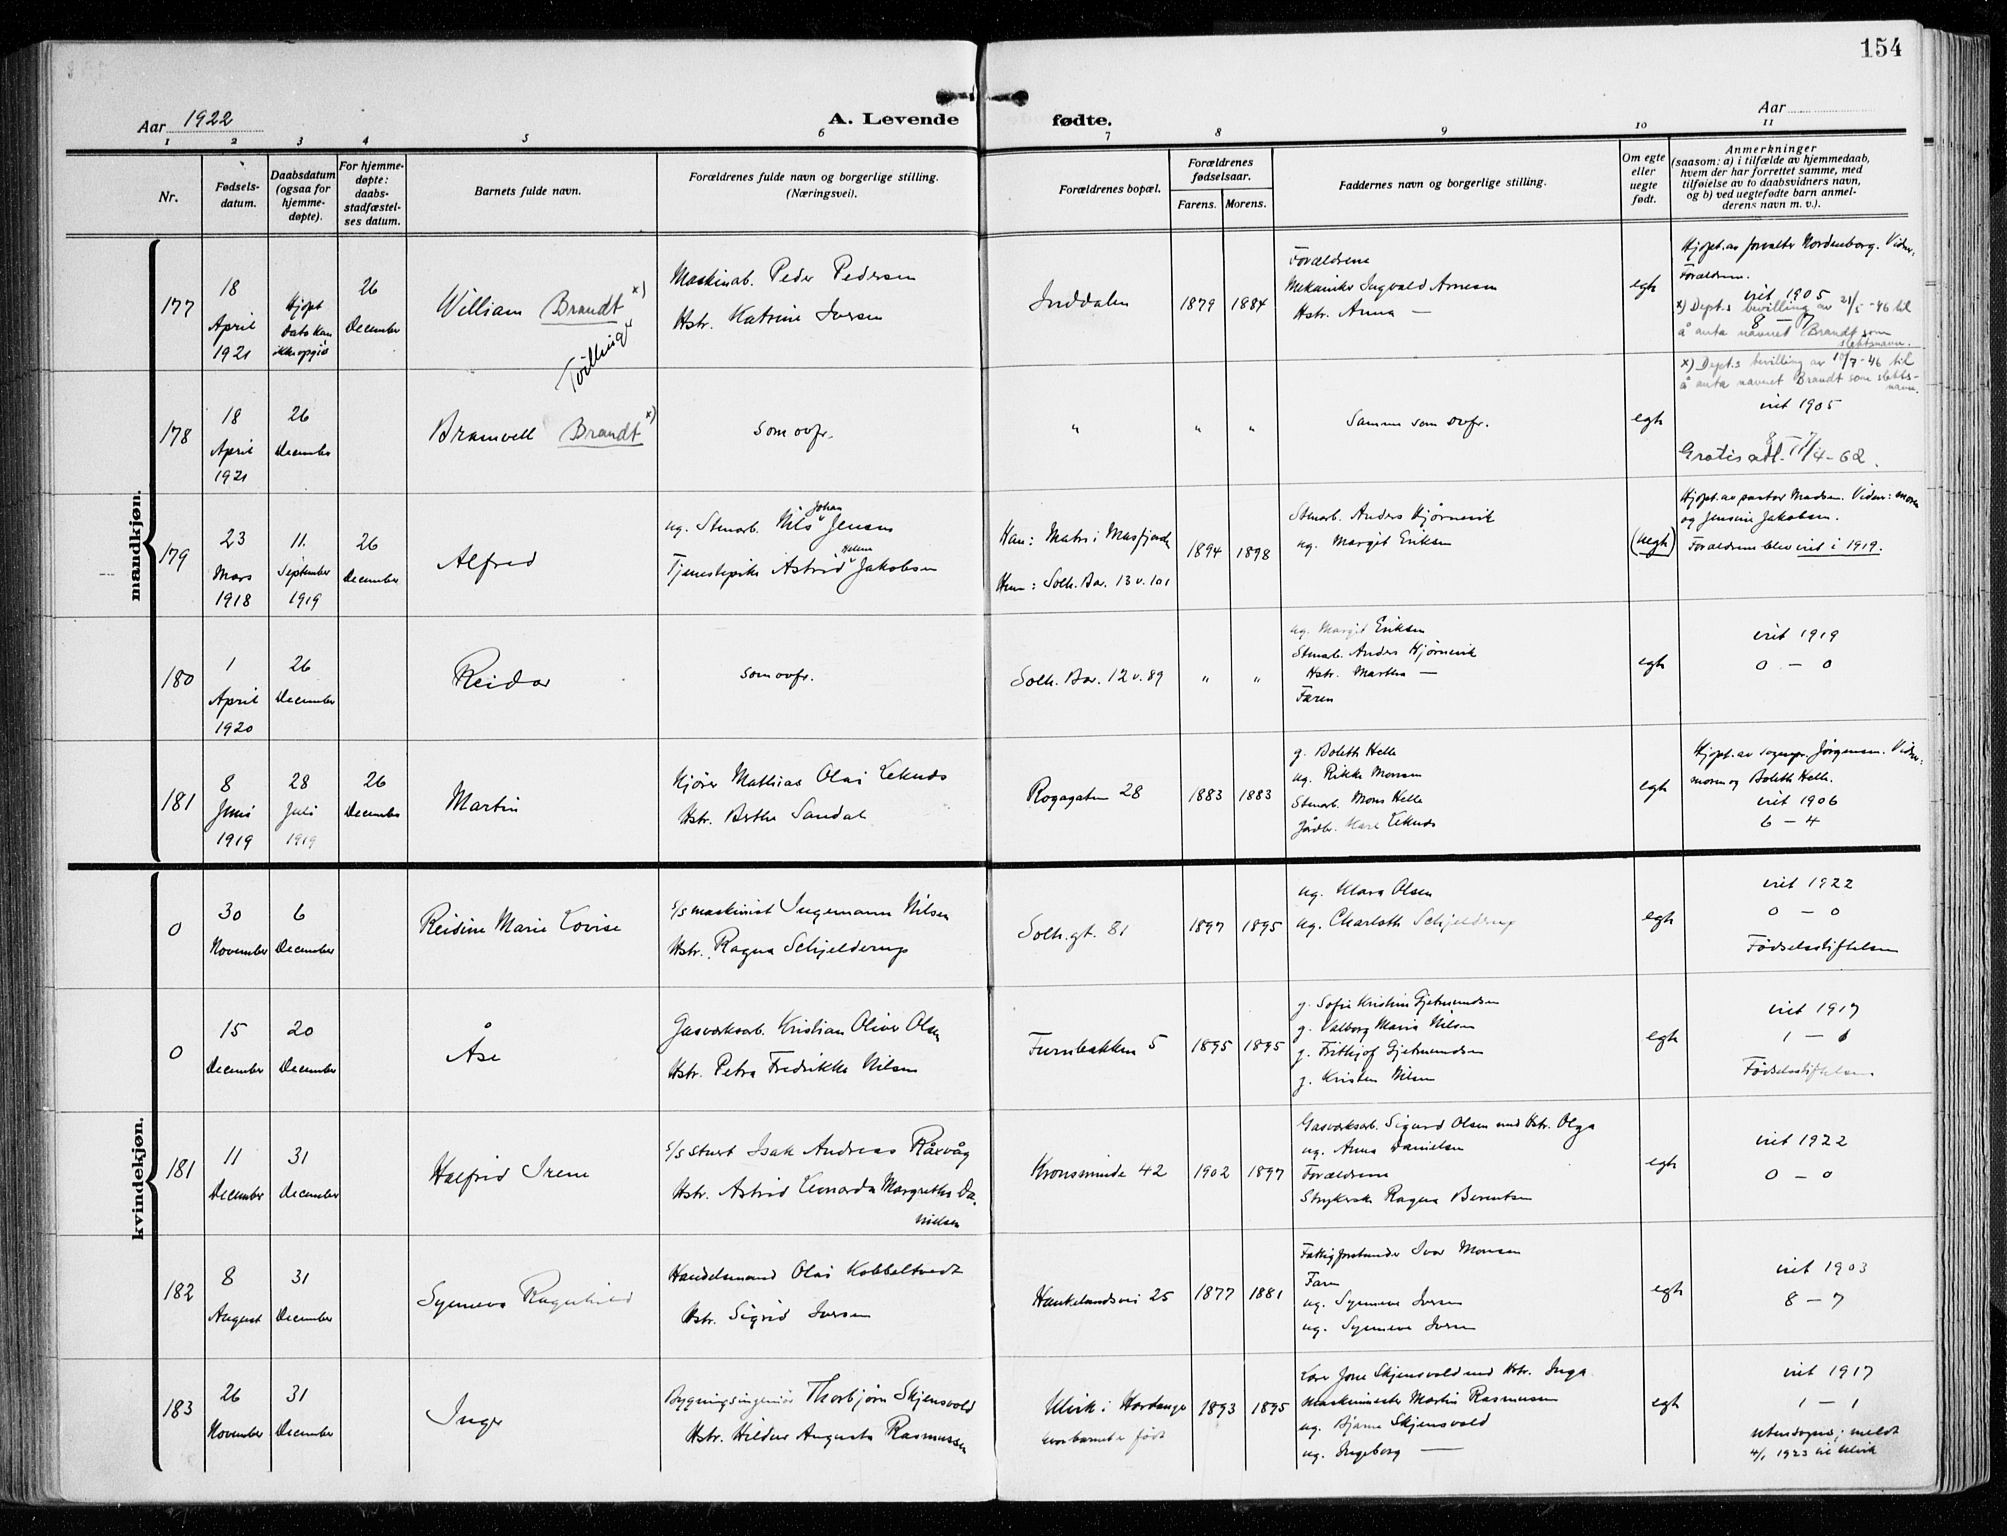 154
Aar 1922
A. Levende fødte.
Aar
1 2 3 4 5 6 7 8 9 10 11
Nr.
Fødsels-
datum.
Daabsdatum
(ogsaa for
hjemme-
døpte).
For hjemme-
døpte:
daabs-
stadfæstel-
ses datum.
Barnets fulde navn.
Forældrenes fulde navn og borgerlige stilling.
(Næringsvei).
Forældrenes bopæl.
Forældrenes
fødselsaar.
Farens. Morens.
Faddernes navn og borgerlige stilling.
Om egte
eller
uegte
født.
Anmerkninger
(saasom: a) i tilfælde av hjemmedaab,
hvem der har forrettet samme, med
tilføielse av to daabsvidners navn,
og b) ved uegtefødte barn anmel-
derens navn m. v.).
mandkjøn.
177
18
April
1921
Hjdpt
Dato kan
ikke opgis
26
December
William Brandt x)
Tvilling
Maskinarb. Peder Pedersen
Hstr. Katrine Iversen
Inddalen
1879 1884
Forældrene
Mekaniker Ingvald Arnesen
Hstr. Anna —
egte
Hjdpt. av forvalter Nordenborg. Vidner:
Forældrene.
viet 1905
8 — 7
x) Dept.s bevilling av 21/5-46 til
å anta navnet Brandt som
slektsnavn.
178
18
April
1921
26
December
Bramvell Brandt x)
som ovfr.
" " "
Samme som ovfr.
egte
x) Dept.s bevilling av 10/7-46 til
å anta navnet Brandt som slekts-
navn.
viet 1905
8 — 7
Gratis att. 11/4-62.
179
23
Mars
1918
11.
September
1919
26
December
Alfred
ug. Stenarb. Nils Johan Jensen
Tjenestepike Astrid Helene Jakobsen
Han: Matre i Masfjorden
Hun: Solh. Bar. 13 v. 101
1894 1898
Stenarb. Anders Hjørnevik
ug. Margit Eriksen
(uegte)
Hjdpt. av pastor Madsen. Vidner: moren
og Jensine Jakobsen.
Forældrene blev viet i 1919.
180
1
April
1920
26
December
Reidar
som ovfr.
Solh. Bar. 12 v. 89
" "
ug. Margit Eriksen
Stenarb. Anders Hjørnevik
Hstr. Martha —
Faren
egte
viet 1919
0 — 0
181
8
Juni
1919
28
Juli
1919
26
December
Martin
Kjører Mathias Olai Leknes
Hstr. Berthe Sandal
Rogagaten 28
1883 1883
g. Boleth Helle
ug. Rikke Monsen
Stenarb. Mons Helle
egte
Hjdpt. av sognepr. Jørgensen. Vidner:
moren og Boleth Helle.
viet 1906
6 — 4
kvindekjøn.
0
30
November
6
December
Reidine Marie Lovise
s/s maskinist Ingemann Nilsen
Hstr. Ragna Schjelderup
Solh. gt. 81
1897 1895
ug. Klara Olsen
ug. Charloth Schjelderup
egte
viet 1922
0 — 0
Fødselsstiftelsen
0
15
December
20
December
Åse
Gasverksarb. Kristian Oliver Olsen
Hstr. Petra Fredrikke Nilsen
Furubakken 5
1895 1895
g. Sofie Kristine Gjetmundsen
g. Valborg Marie Nilsen
g. Frithjof Gjetmundsen
g. Kristen Nilsen
egte
viet 1917
Fødselsstiftelsen
181
11
December
31
December
Halfrid Irene
s/s stuert Isak Andreas Råxvåg
Hstr. Astrid Leonarda Margrethe Da-
nielsen
Kronsminde 42
1902 1897
Gasverksarb. Sigurd Olsen med Hstr. Olga
ug. Anna Danielsen
Forældrene
Strykerske Ragna Berentsen
egte
viet 1922
0 — 0
182
8
August
31
December
Synneva Ragnhild
Handelsmand Olai Kobbeltvedt
Hstr. Sigrid Iversen
Haukelandsvei 25
1877 1881
Fattigforstander Ivar Monsen
Faren
ug. Synneve Iversen
ug. Synneve Iversen
egte
viet 1903
8 — 7
183
26
November
31
December
Inger
Bygningsingeniør Thorbjørn Skjensvold
Hstr. Hildur Augusta Rasmussen
Ulvik i Hardanger
hvor barnet er født
1893 1895
Lærer Jone Skjensvold med Hstr. Inga
Maskinmester Martin Rasmussen
ug. Bjarne Skjensvold
ug. Ingeborg —
egte
viet 1917
1 — 1
utensogns; meldt
4/1 1923 til Ulvik